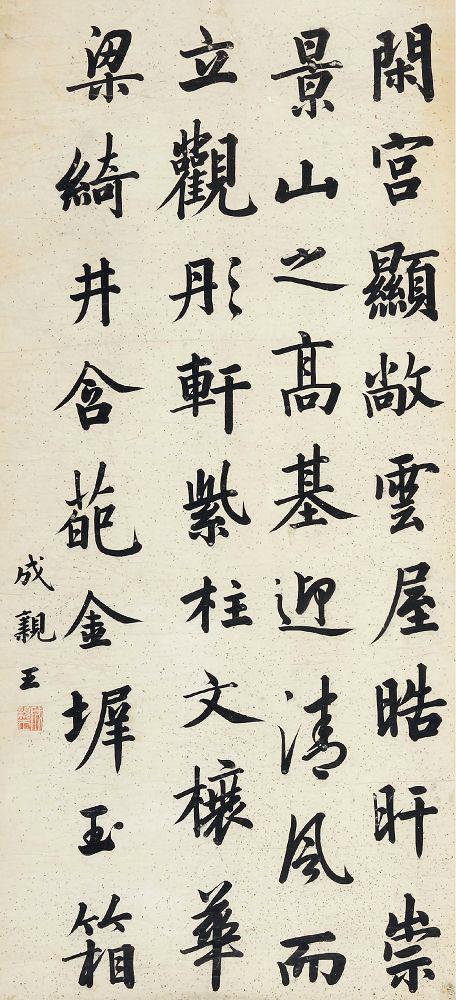 閑宮顯敞雲屋晧旰崇
景山之高基迎清風而
立觀彤軒紫柱文榱華
梁綺井含葩金墀玉箱
成親王